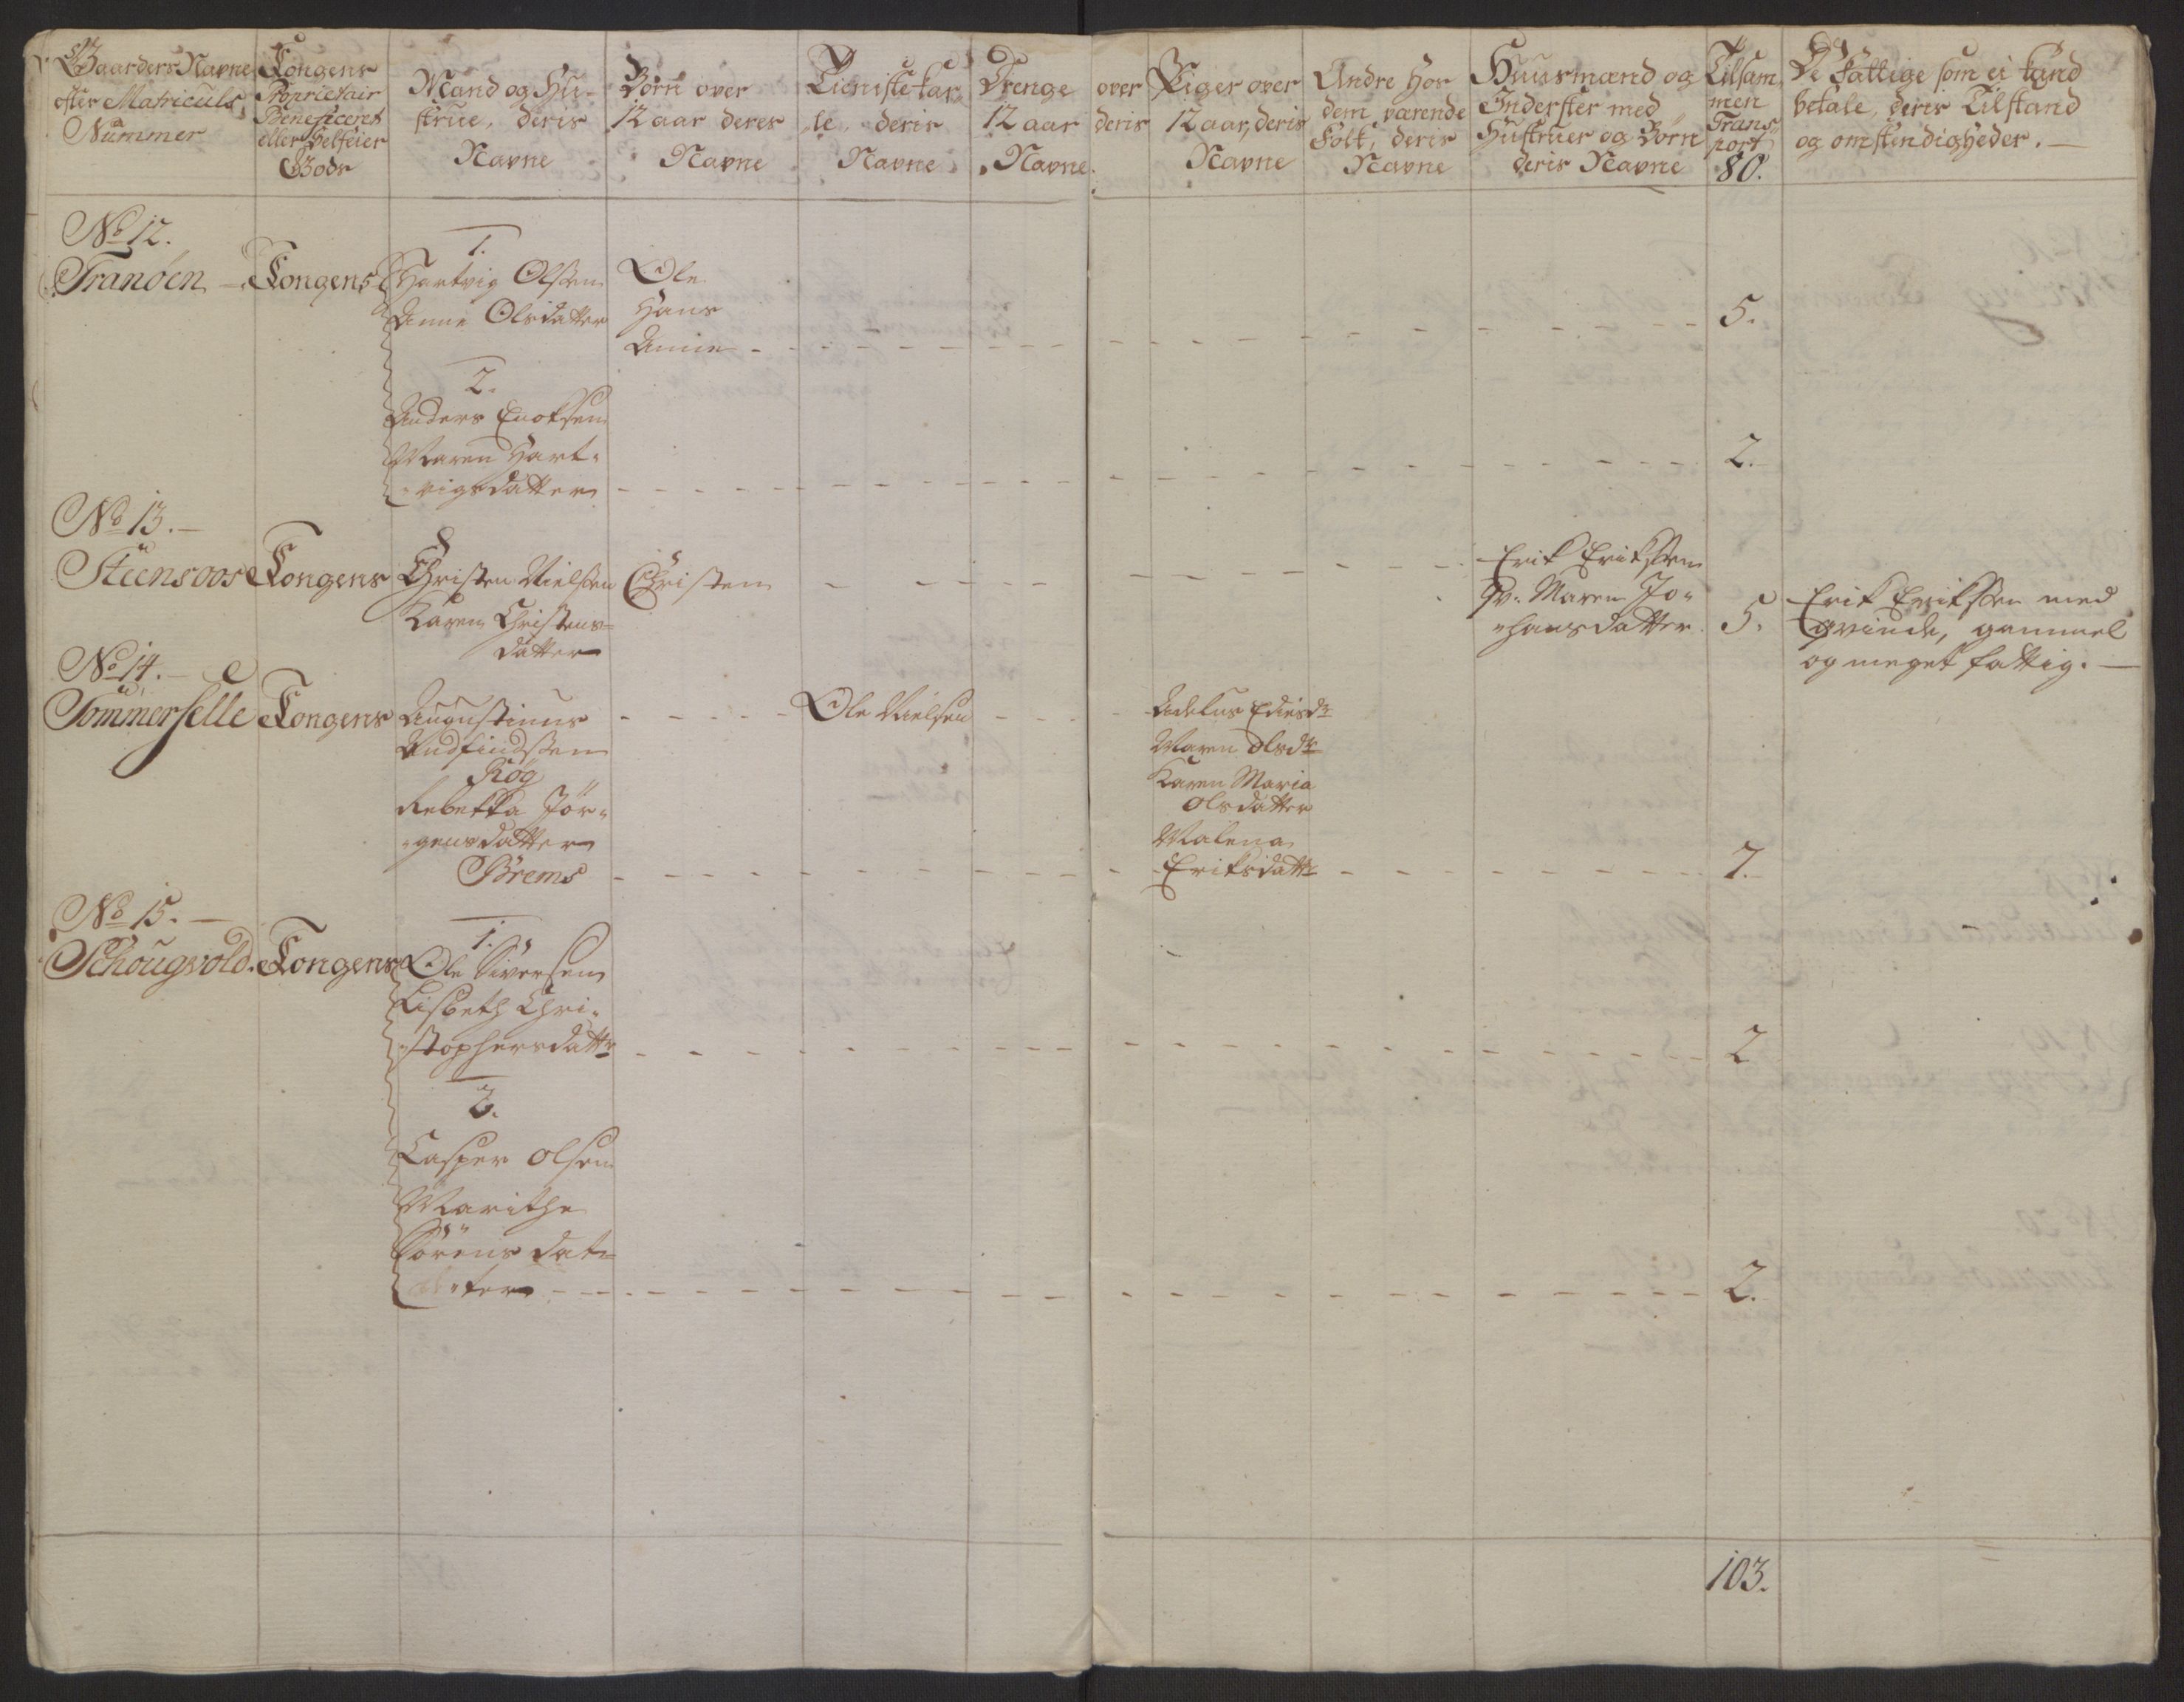 Gaarders Navne
efter Matriculs
Nummer
Kongens
Proprietair
Beneficeret
eller Selfeier
Gods
Mand og Hu-
strue, deris
Navne
Börn over
12 aar deres
Navne
Tieniste Kar-
le, deris
Navne
Drenge over
12 aar deris
Navne.
Piger over
12 aar, deris
Navne
Andre Hos
dem værende
Folk, deris
Navne
Huusmænd og
Inderster med
Hustruer og Börn
deris Navne
Tilsam
men
Trans
port
80.
De Fattige som ei kand
betale, deres Tilstand
og omstendigheder. —
No 12.
Tranöen - Kongens
1.
Hartvig Olsen
Anne Olsdatter
Ole
Hans
Anne
5.
2.
Anders Enoksen
Maren Hart-
vigsdatter
2.
No 13. —
Steensoos Kongens
Christen Nielsen
Karen Christens-
datter
Christen
Erik Erikssen
Qv. Maren Jo-
hansdatter
5.
Erik Erikssen med
qvinde, gammel
og meget fattig. —
No 14. —
Tömmerselle Kongens
Augustinus
Andfindssen
Rög
Rebekka Jör-
gensdatter
Brems
Ole Nielsen
Adelus Ediesdr
Maren Olsdr
Karen Maria
Olsdatter
Malena
Eriksdattr
7.
No 15. —
Schougvold. Kongens
1.
Ole Siversen
Lisbeth Chri-
stophersdattr
2
2.
Casper Olsen
Marithe
Sörens dat-
ter
2.
103.